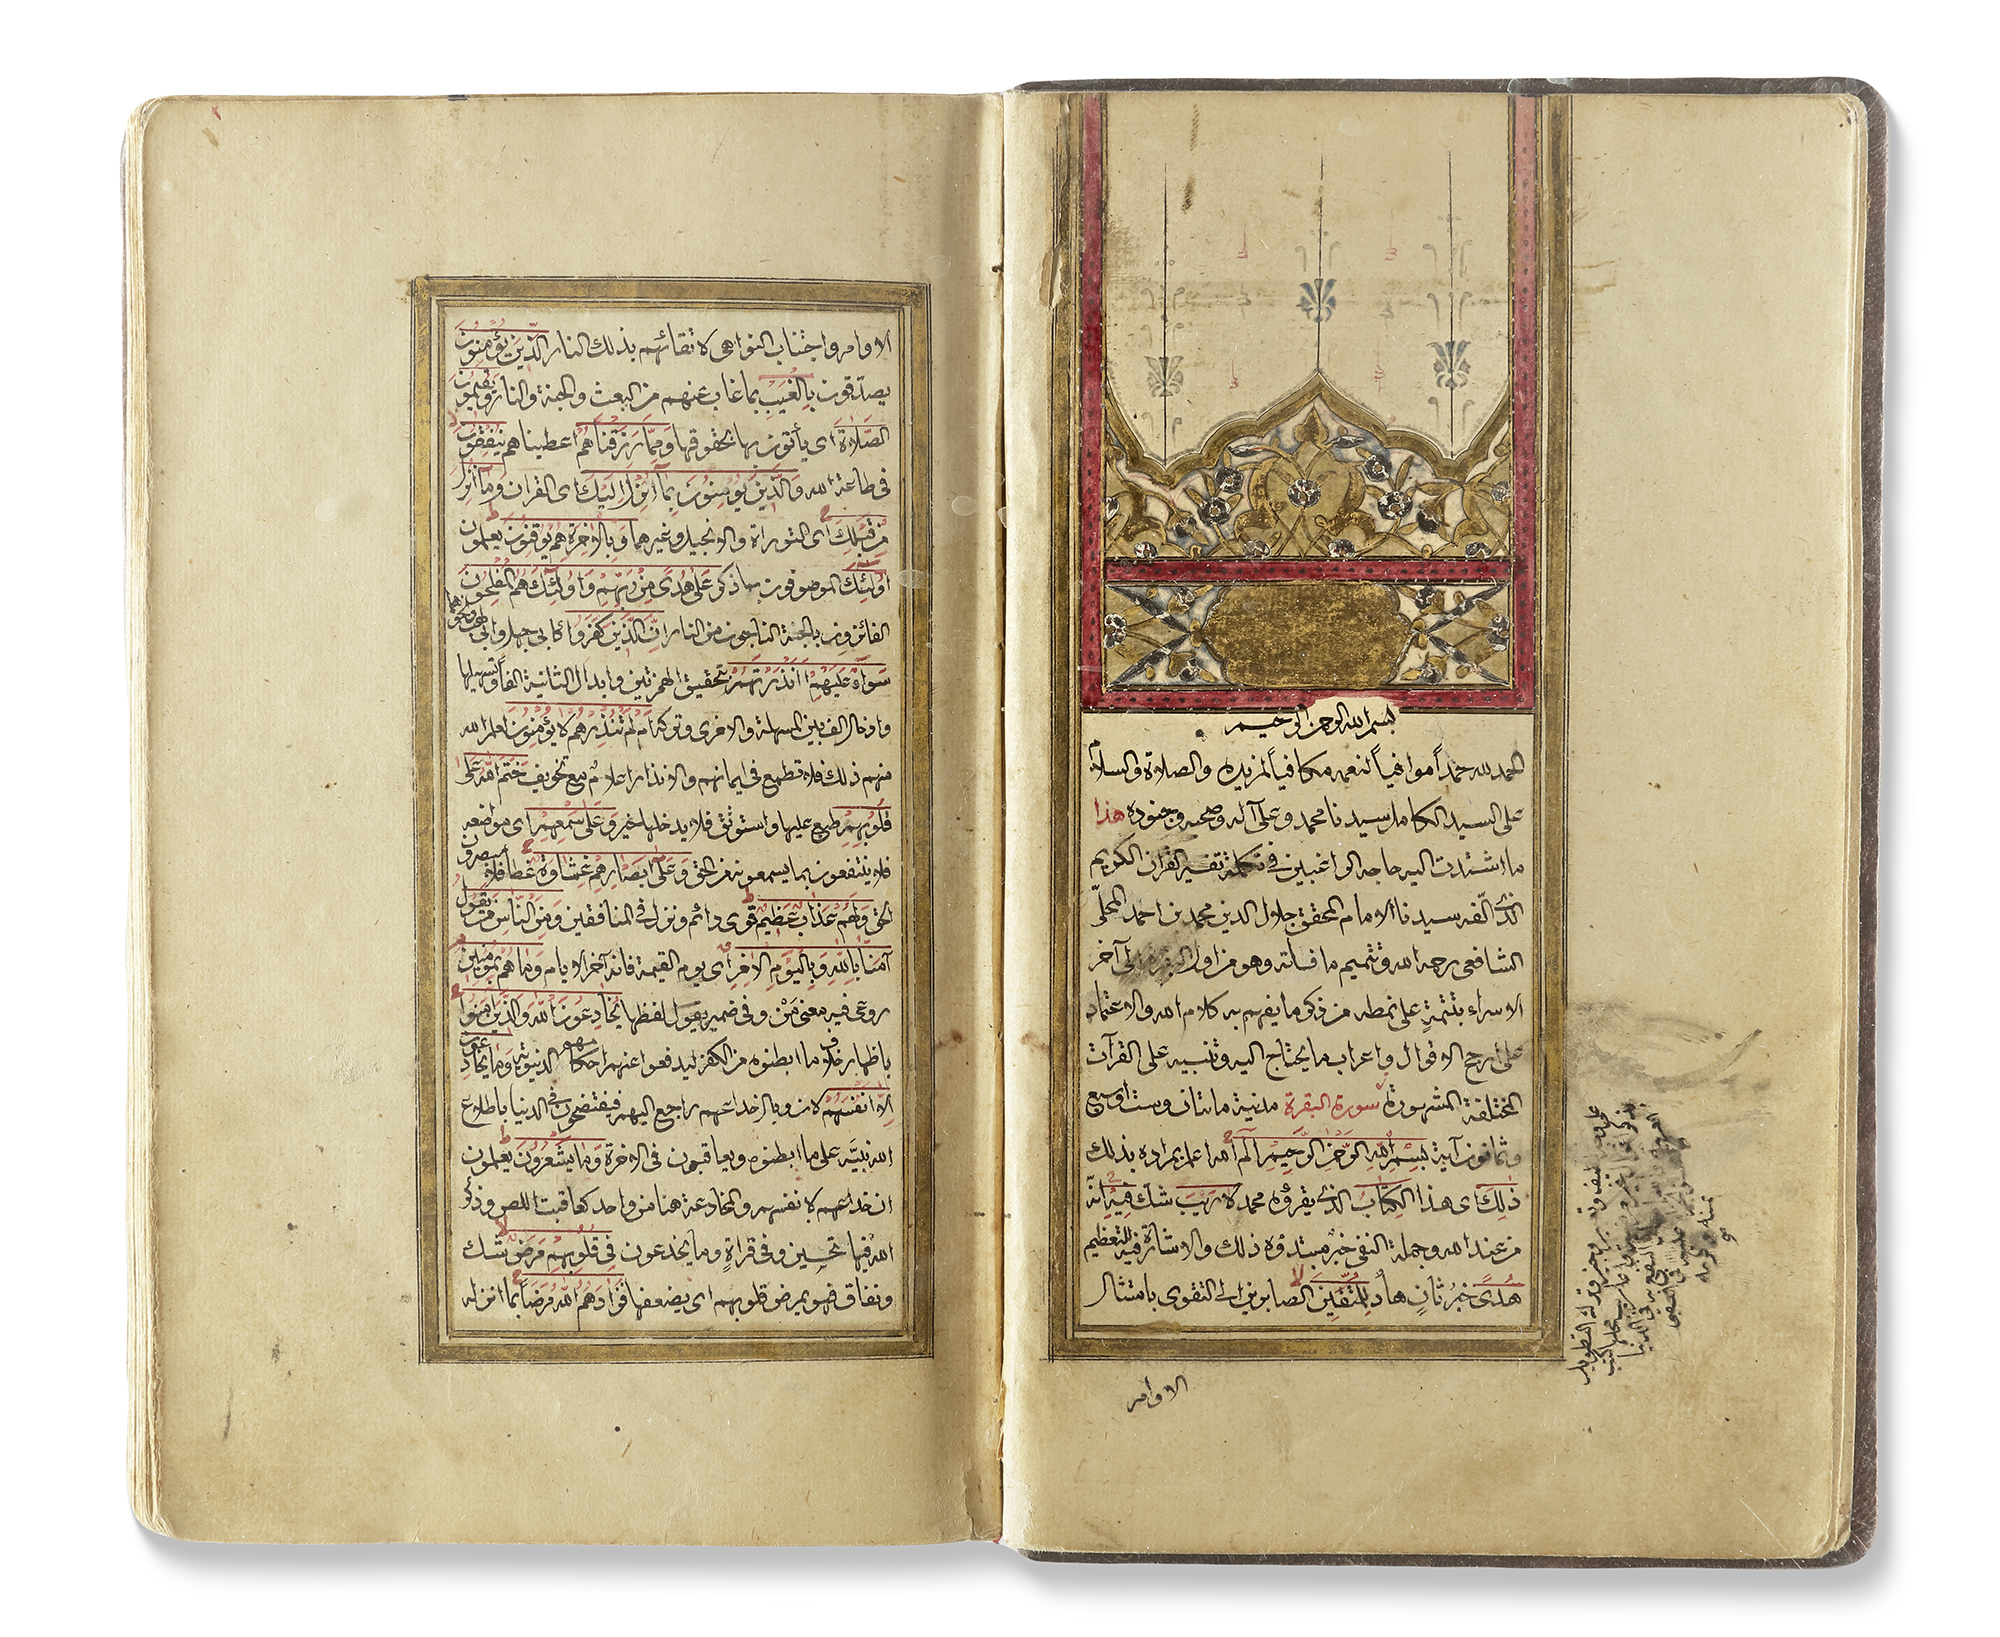 بسم الله الرحمن الرحيم
الحمد لله حمداً موافياً لنعمه مكافياً لمزيده والصلاة والسلام
على السيد الكامل سيدنا محمد وعلى آله وصحبه وجنوده هذا
ما اشتدت اليه حاجة الراغبين في تكملة تفسير القران الكريم
الذي الّفه سيدنا الامام المحقق جلال الدين محمد بن احمد المحلّي
الشافعي رحمه الله وتتميم ما فاته وهو من اول البقرة الى آخر
الاسراء بتتمةٍ على نمطه من ذكر ما يفهم به كلام الله والاعتماد
على ارجح الاقوال واعراب ما يحتاج اليه وتنبيه على القرآت
المختلفة المشهورة سورة البقرة مدنية مائتان وست اوسبع
وثمانون آية بِسْمِ اللهِ الرَّحْمٰنِ الرَّحِيْمِ الٓمٓ الله اعلم بمراده بذلك
ذٰلِكَ اى هذا الْكِتَابُ الذى يقرؤه محمد لَا رَيْبَ شك فِيْهِ انّه
من عند الله وجملة النفى خبر مبتدؤه ذلك والاشارة فيه للتعظيم
هُدًى خبر ثانٍ هادٍ لِلْمُتَّقِيْنَ الصايرين الى التقوى بامتثال
الاوامر
الاوامر واجتناب النواهى لاتقائهم بذلك النار الَّذِيْنَ يُؤْمِنُوْنَ
يصدّقون بِالْغَيْبِ بما غاب عنهم من البعث والجنة والنار وَيُقِيْمُوْنَ
الصَّلَاةَ اى يأتون بها بحقوقها وَمِمَّا رَزَقْنَاهُمْ اعطيناهم يُنْفِقُوْنَ
فى طاعة الله وَالَّذِيْنَ يُؤْمِنُوْنَ بِمَا اُنْزِلَ اِلَيْكَ اى القران وَمَا اُنْزِلَ
مِنْ قَبْلِكَ اى التوراة والانجيل وغيرهما وَبِالْاٰخِرَةِ هُمْ يُوْقِنُوْنَ يعلمون
اُولٰئِكَ الموصوفون بما ذكر عَلٰى هُدًى مِنْ رَبِّهِمْ وَاُولٰئِكَ هُمُ الْمُفْلِحُوْنَ
الفائزون بالجنة الناجون من النار اِنَّ الَّذِيْنَ كَفَرُوْا كابى جهل وابى لهب ونحوهما
سَوَآءٌ عَلَيْهِمْ ءَاَنْذَرْتَهُمْ بتحقيق الهمزتين وابدال الثانية الفا وتسهيلها
وادخال الف بين المسهلة والاخرى وتركه اَمْ لَمْ تُنْذِرْهُمْ لَا يُؤْمِنُوْنَ لعلم الله
منهم ذلك فلا تطمع فى ايمانهم والانذار اعلام مع تخويف خَتَمَ اللهُ عَلٰى
قُلُوْبِهِمْ طبع عليها واستوثق فلا يدخلها خير وَعَلٰى سَمْعِهِمْ اى مواضعه
فلا ينتفعون بما يسمعونه من الحق وَعَلٰى اَبْصَارِهِمْ غِشَاوَةٌ غطا فلا يبصرون
الحق وَلَهُمْ عَذَابٌ عَظِيْمٌ قوى دائم ونزل فى المنافقين وَمِنَ النَّاسِ مَنْ يَقُوْلُ
اٰمَنَّا بِاللهِ وَبِالْيَوْمِ الْاٰخِرِ اى يوم القيمة فانه آخر الايام وَمَا هُمْ بِمُؤْمِنِيْنَ
روعى فيه معنى من وفى ضمير يقول لفظها يُخَادِعُوْنَ اللهَ وَالَّذِيْنَ اٰمَنُوْا
باظهار خلاف ما ابطنوه من الكفر ليدفعوا عنهم احكامهم الدنيوية وَمَا يُخَادِعُوْنَ
اِلَّا اَنْفُسَهُمْ لان وبال خداعهم راجع اليهم فيفتضحون فى الدنيا باطلاع
الله نبيّه على ما ابطنوه ويعاقبون فى الاخرة وَمَا يَشْعُرُوْنَ يعلمون
ان خداعهم لانفسهم والمخادعة هنا من واحد كعاقبت اللص وذكر
الله فيها تحسين وفى قراةٍ وما يخدعون فِىْ قُلُوْبِهِمْ مَرَضٌ شك
ونفاق فهو يمرض قلوبهم اى يضعفها فَزَادَهُمُ اللهُ مَرَضًا بما انزله